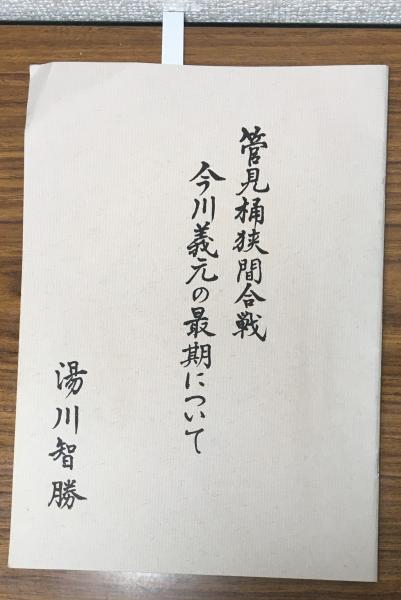 管見桶狭間合戦
今川義元の最期について
湯川智勝